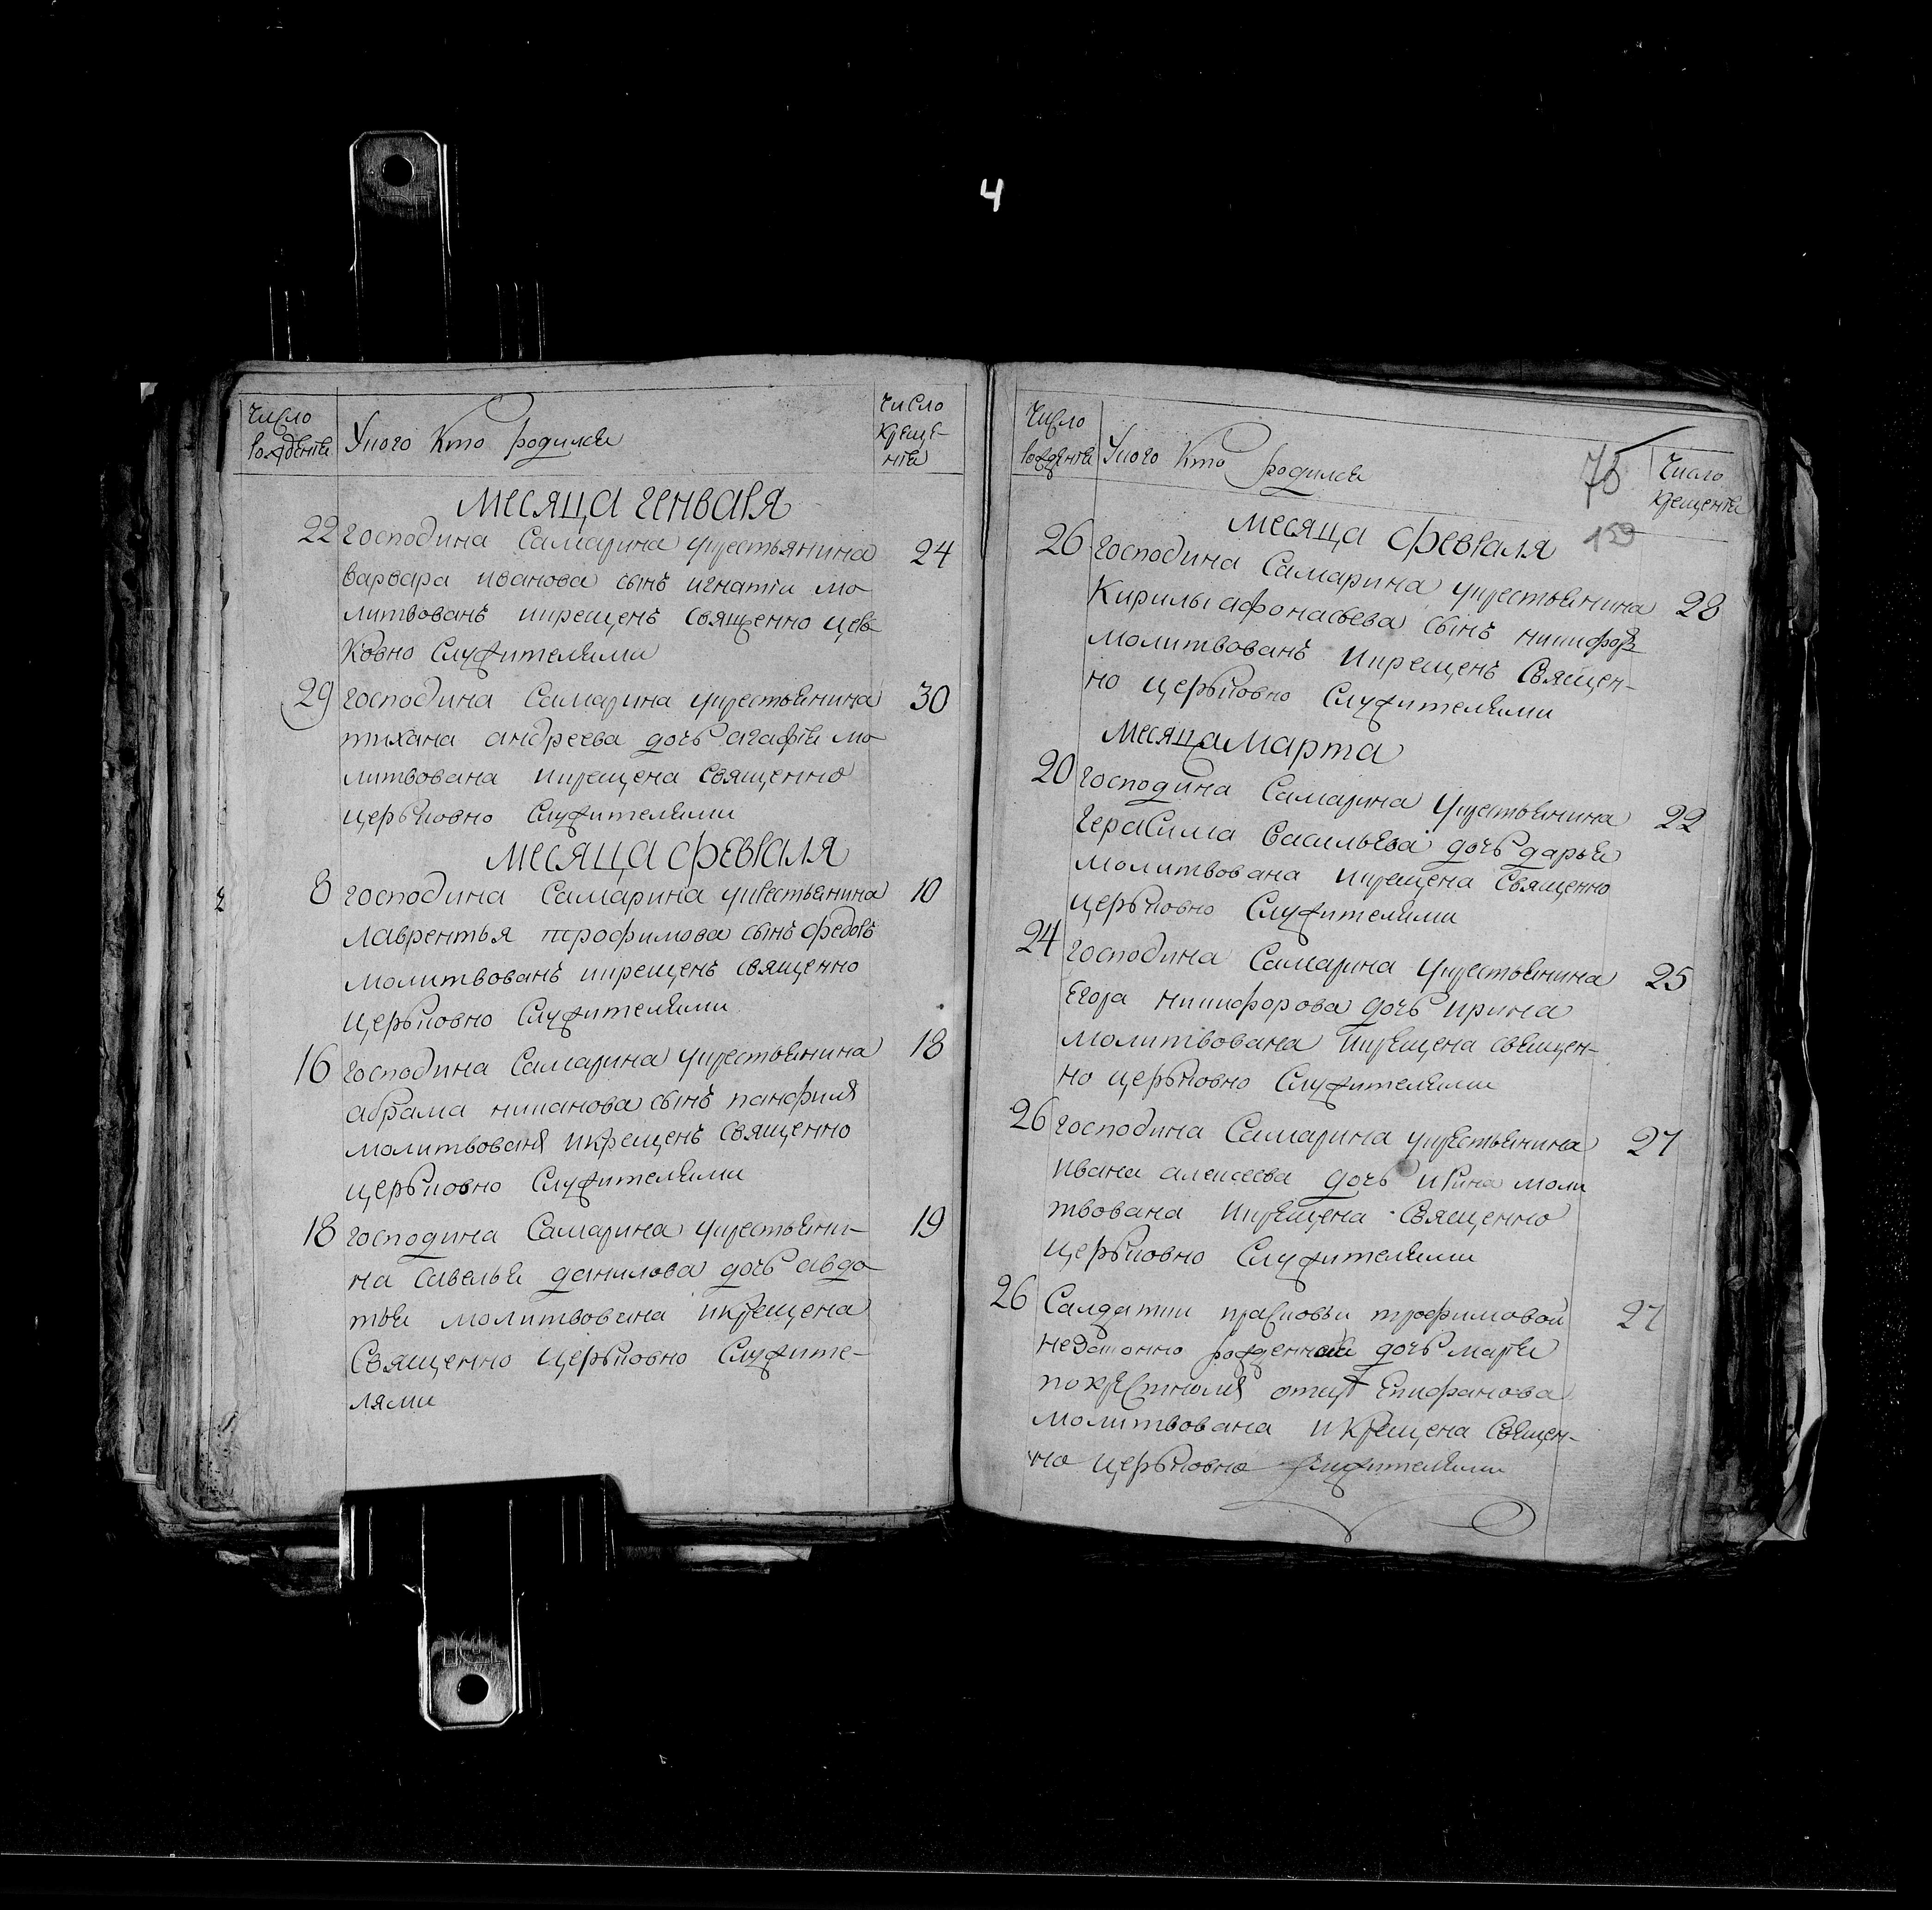 4
Число рожденiя
Укого Кто родился
Число Крещенiя
Месяца генваря
22 господина Самарина укрестьянина 24
варвара иванова сынъ игнатiи мо
литвованъ икрещенъ священно цер
ковно служителями
29 господина Самарина укрестьянина 30
тихана андреева дочь агафiя мо
литвована икрещена священно
церьковно служителями
Месяца февраля
8 господина Самарина укрестьянина 10
лаврентья трофимова сынъ федоръ
молитвованъ икрещенъ священно
церьковно служителями
16 господина Самарина укрестьянина 18
абрама никанова сынъ панфилъ
молитвованъ икрещенъ священно
церьковно служителями
18 господина Самарина укрестьяни- 19
на савелья данилова дочь авдо
тья молитвована икрещена
священно церьковно служите-
лями
Число рожденiя
Укого Кто родился
75
Число крещенiя
159
Месяца февраля
26 господина Самарина укрестьянина 28
Кирилы афонасьева сынъ никифоръ
молитвованъ икрещенъ священ-
но церьковно служителями
Месяца Марта
20 господина Самарина укрестьянина 22
герасима васильева дочь дарья
молитвована икрещена священно
церьковно служителями
24 господина Самарина укрестьянина 25
егора никифорова дочь ирина
молитвована икрещена священ-
но церьковно служителями
26 господина Самарина укрестьянина 27
ивана алексеева дочь ирина моли
твована икрещена священно
церьковно служителями
26 Салдатки прасковьи трофимовой 27
рожденная дочь марья
отцу епифанова
молитвована икрещена священ-
но церьковно служителями